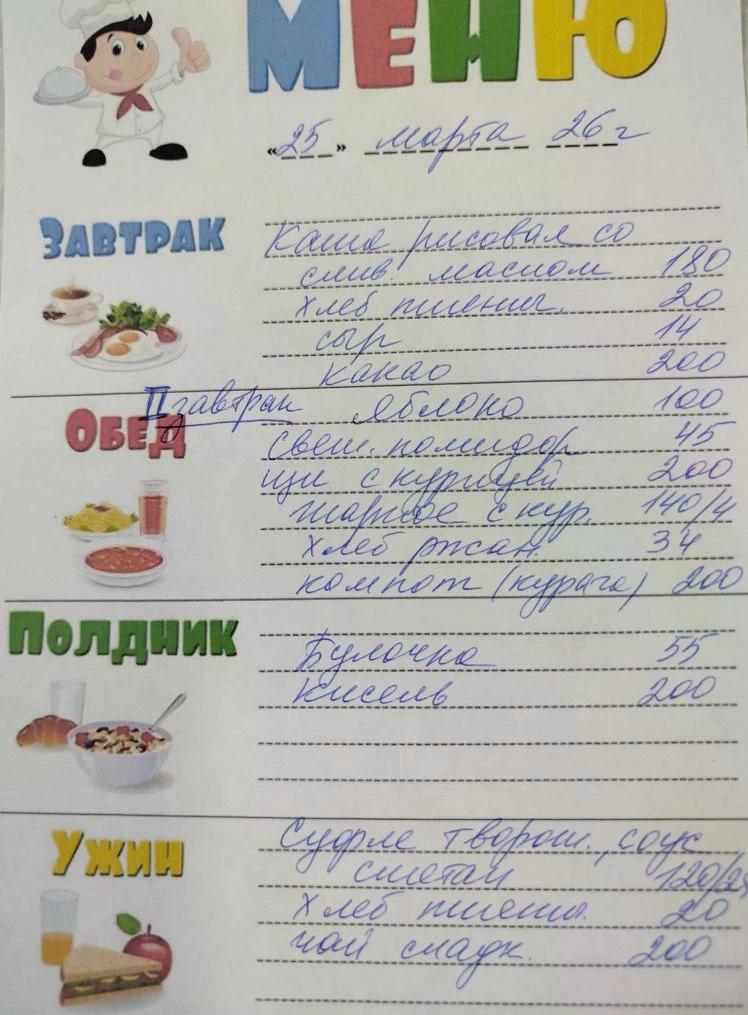 МЕНЮ
«25» марта 26 г
ЗАВТРАК Каша рисовая со
слив. маслом 180
хлеб пшенич. 20
сыр 14
какао 200
II завтрак яблоко 100
ОБЕД свеш. помидор 45
щи с курицей 200
жаркое с кур. 140/4
хлеб ржан. 34
компот (курага) 200
ПОЛДНИК
Булочка 55
кисель 200
УЖИН Суфле творож., соус
сметан 120/25
хлеб пшенич. 20
чай сладк. 200